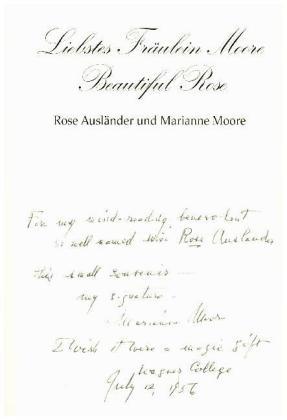 Liebstes Fräulein Moore
Beautiful Rose
Rose Ausländer und Marianne Moore
For my mind-reading benevolent
so well named Miss Rose Auslander
this small souvenir —
my signature.
Marianne Moore
I wish it were a magic gift
Wagner College
July 12, 1956